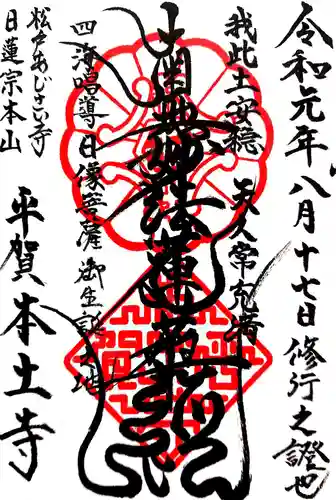 令和元年八月十七日修行之證也
我此土安穏 天人常充満
南無妙法蓮華経
四海唱導日像菩薩御生誕之地
松戸あじさい寺
日蓮宗本山
平賀本土寺